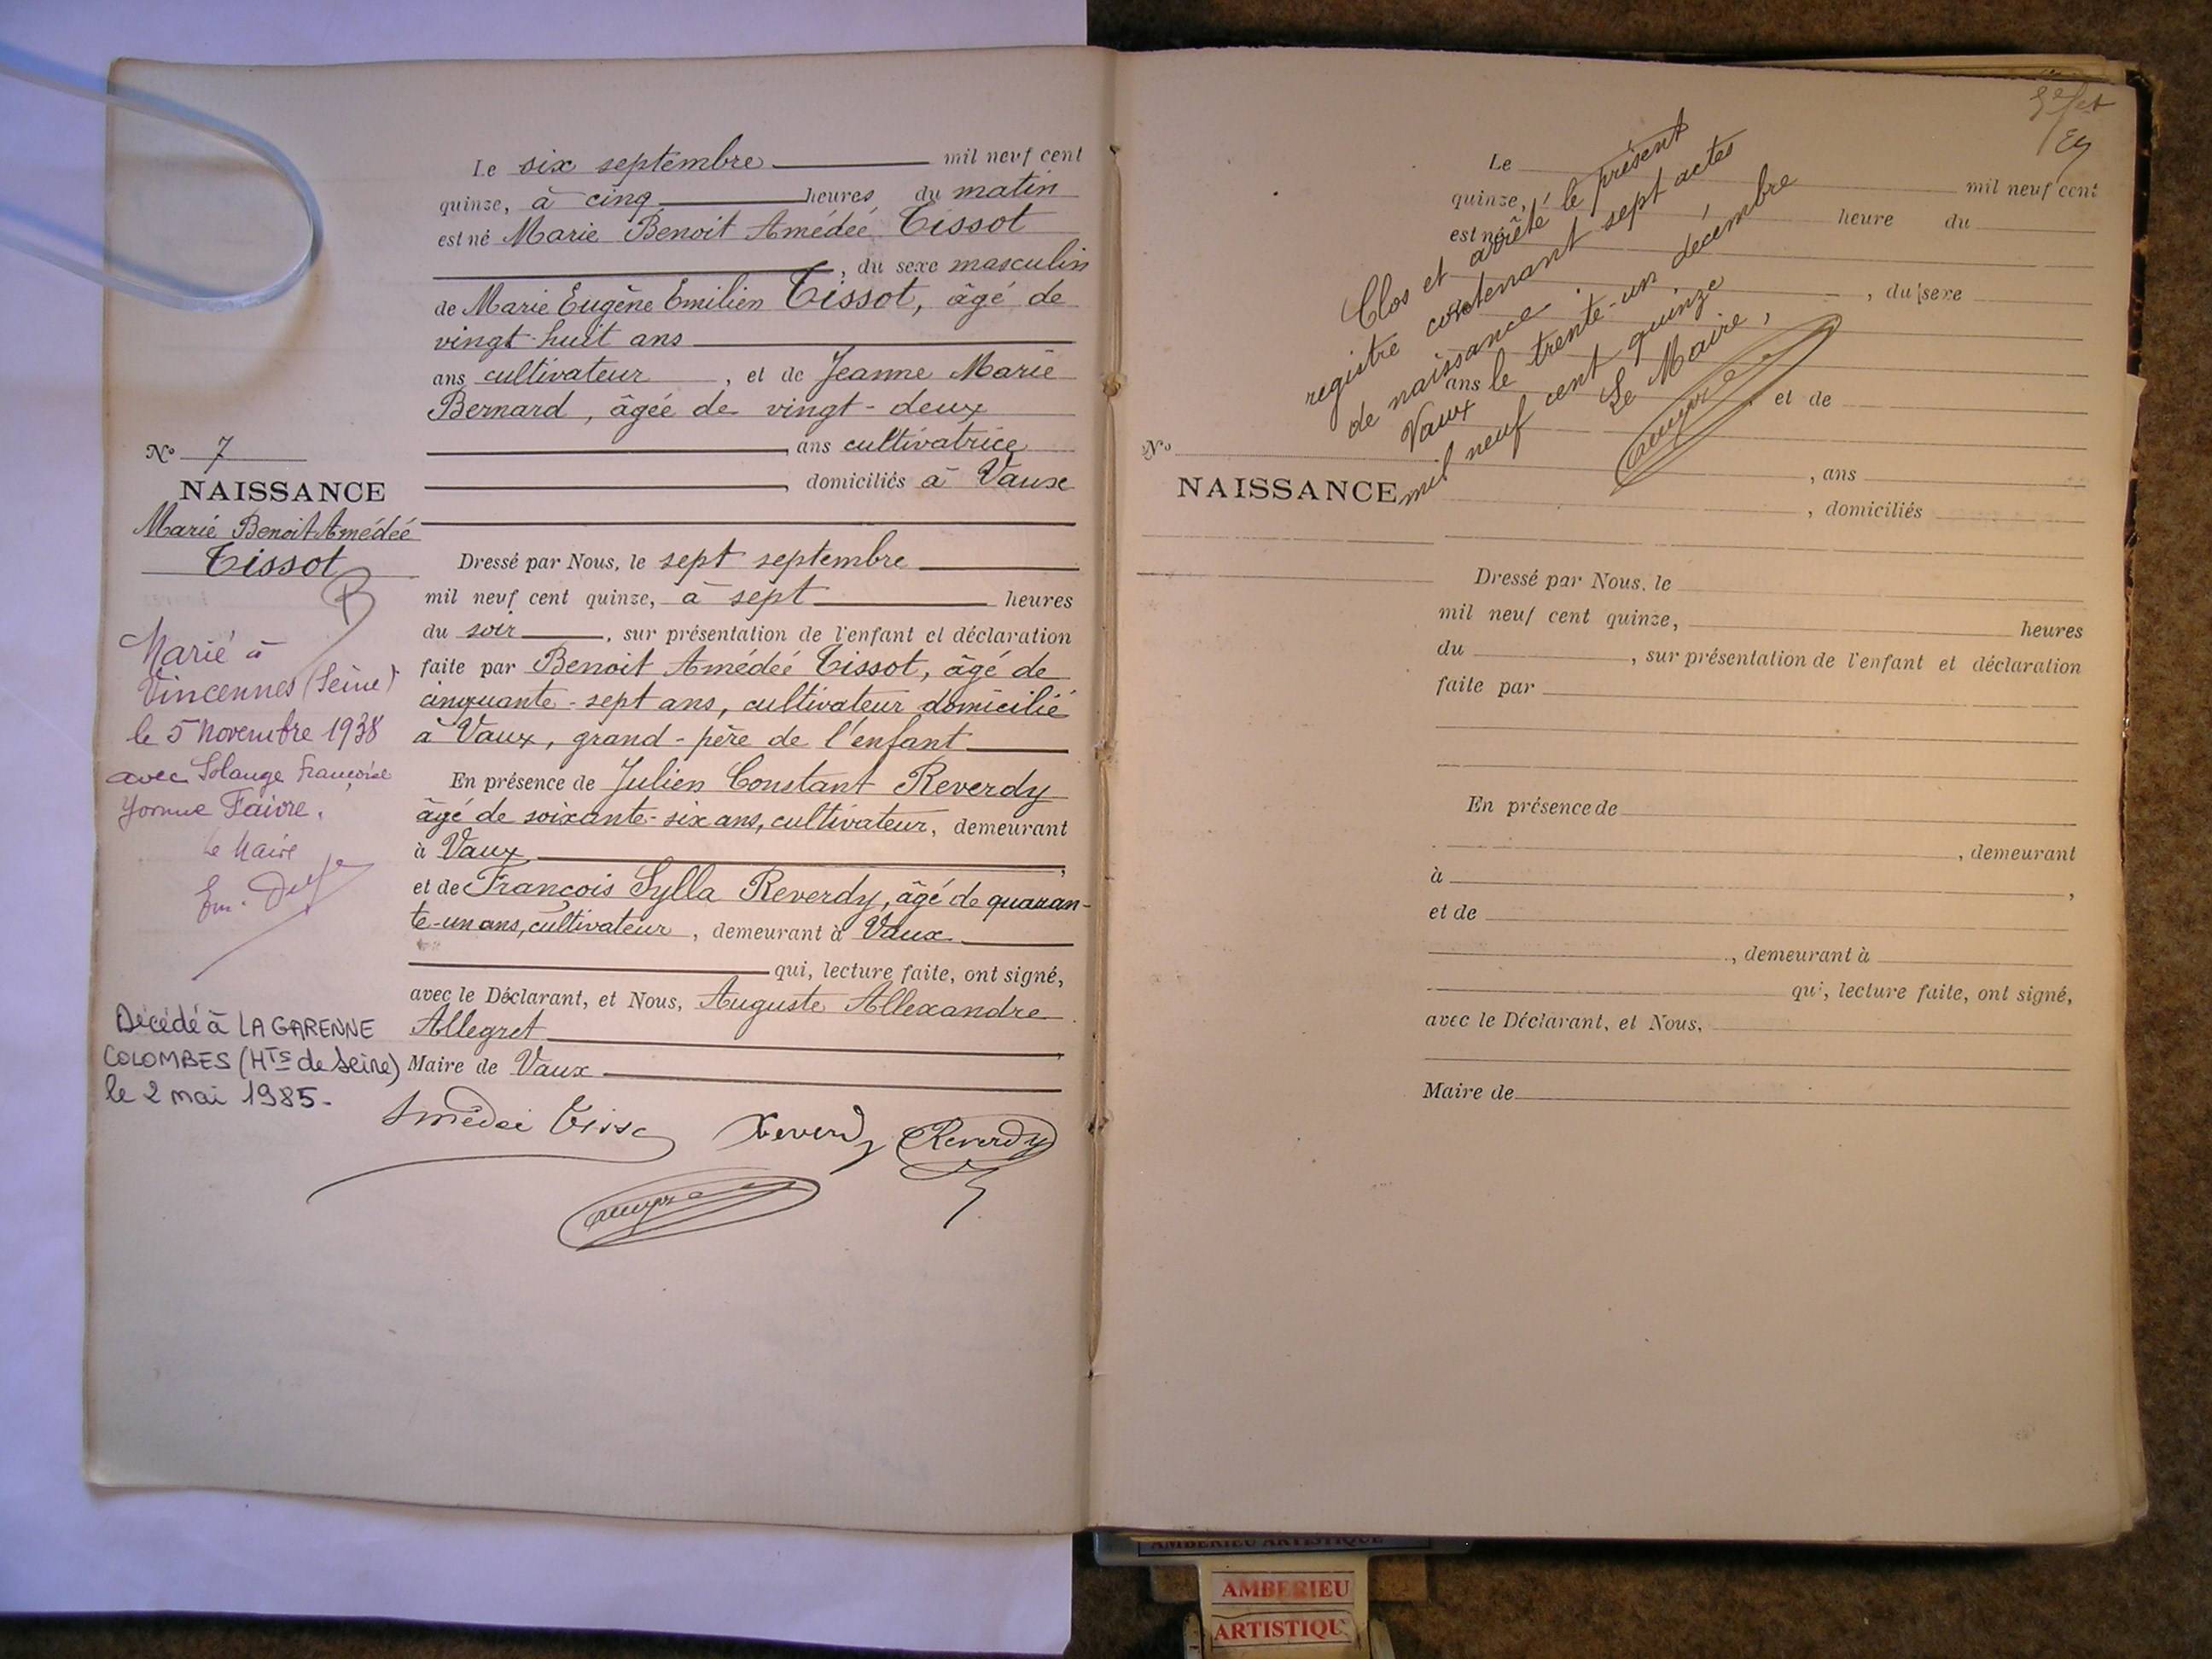 Le six septembre mil neuf cent
quinze, à cinq heures du matin
est né Marie Benoit Amédéé Tissot
, du sexe masculin
de Marie Eugène Emilien Tissot, âgé de
vingt-huit ans
ans cultivateur , et de Jeanne Marie
Bernard, âgée de vingt-deux
, ans cultivatrice
, domiciliés à Vaux
No 7
NAISSANCE
Marie Benoit Amédéé
Tissot
Dressé par Nous, le sept septembre
mil neuf cent quinze, à sept heures
du soir , sur présentation de l'enfant et déclaration
faite par Benoit Amédéé Tissot, âgé de
cinquante-sept ans, cultivateur domicilié
à Vaux, grand-père de l'enfant
En présence de Julien Constant Reverdy
âgé de soixante-six ans, cultivateur, demeurant
à Vaux ,
et de François Sylla Reverdy, âgé de quaran-
te-un ans, cultivateur , demeurant à Vaux
qui, lecture faite, ont signé,
avec le Déclarant, et Nous, Auguste Allexandre
Allegret ,
Maire de Vaux
Marié à
Vincennes (Seine)
le 5 Novembre 1938
avec Solange Françoise
Yvonne Faivre.
Le Maire
Em.
Décédé à LA GARENNE
COLOMBES (HTS de Seine)
le 2 mai 1985-
Amédéé Tisso
Reverdy
Reverdy
Le mil neuf cent
quinze, heure du
est né
, du sexe
ans , et de
, ans
, domiciliés
Clos et arrêté le présent
registre contenant sept actes
de naissance.
Vaux le trente-un décembre
mil neuf cent quinze
Le Maire,
No
NAISSANCE
Dressé par Nous, le
mil neuf cent quinze, heures
du , sur présentation de l'enfant et déclaration
faite par
En présence de
, demeurant
à ,
et de
, demeurant à
qui, lecture faite, ont signé,
avec le Déclarant, et Nous,
Maire de
AMBERIEU ARTISTIQUE
AMBERIEU
ARTISTIQU